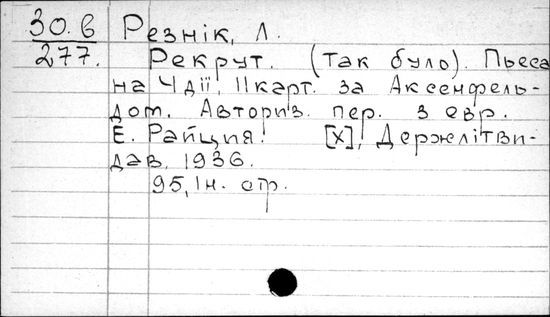 30.6 Резнік, Л.
277. Рекрут. (Так було). Пьеса
на 4 дії, 11 карт. за Аксенфель-
дом. Авториз. пер. з евр.
Е. Райцина. [Х], Держлітви-
дав, 1936.
95, Iн. стр.